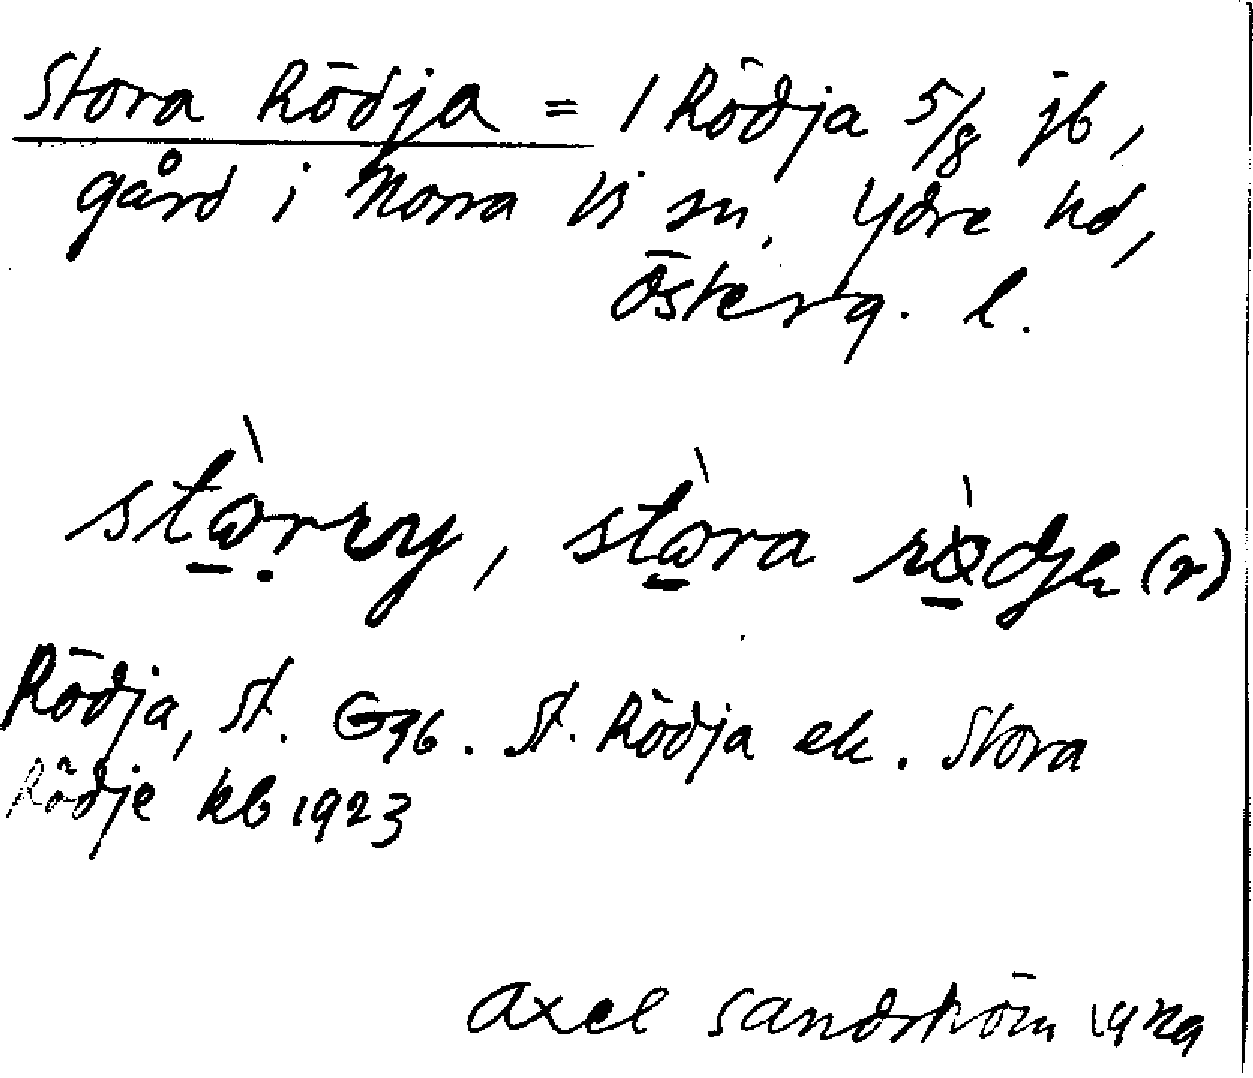 Stora Rödja = 1 Rödja 5/8 jb,
gård i Norra Vi sn, Ydre hd,
Österg. l.
stora rödje (r)
Rödja, St. G96. St. Rödja ek. Stora
Rödje kb 1923
Axel Sandström 1929